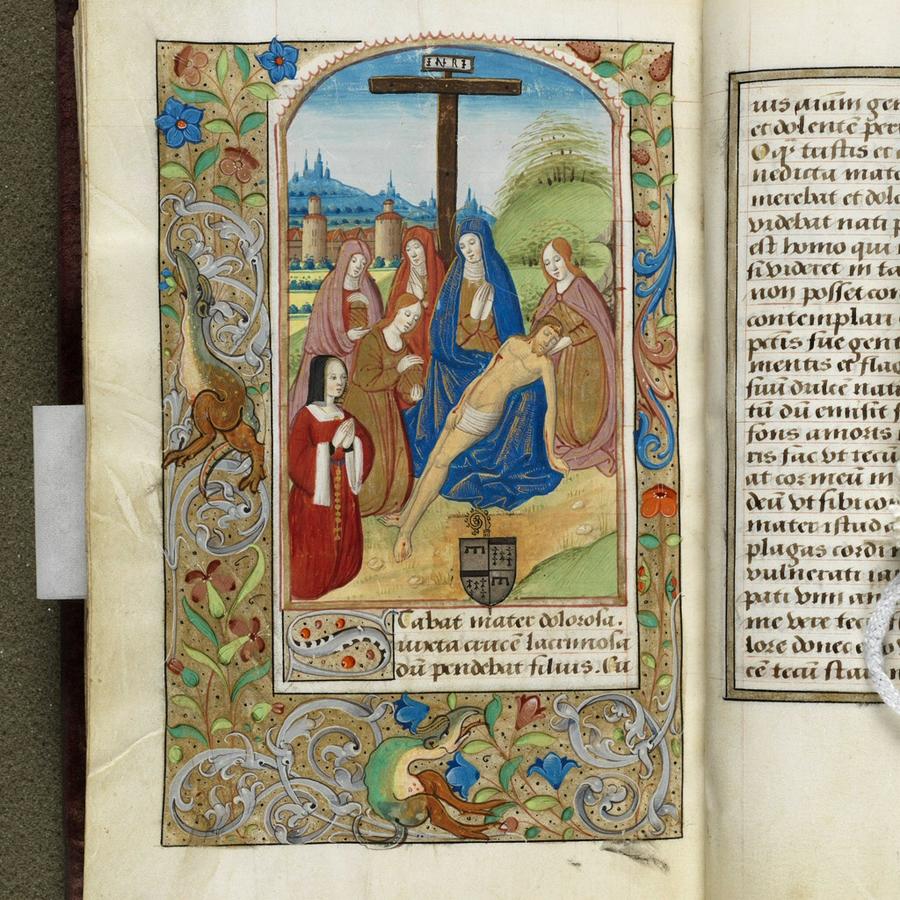 INRI
Stabat mater dolorosa.
iuxta crucē lacrimosa
dū pendebat filius. Cu
uis aīam gem
et dolentē per
O q̄ tristis et
nedicta mate
merebat et dole
videbat nati p
est homo qui
si videret in ta
non posset con
contemplari
pctīs sue gent
mentis et flag
suū dulcē nat
tū dū emisit s
fons amoris
ris fac vt tecū
at cor meū in
deū vt sibi co
mater istud a
plagas cordi
vulnerati
pati
me vere tecū
lore donec
cē tecū sta